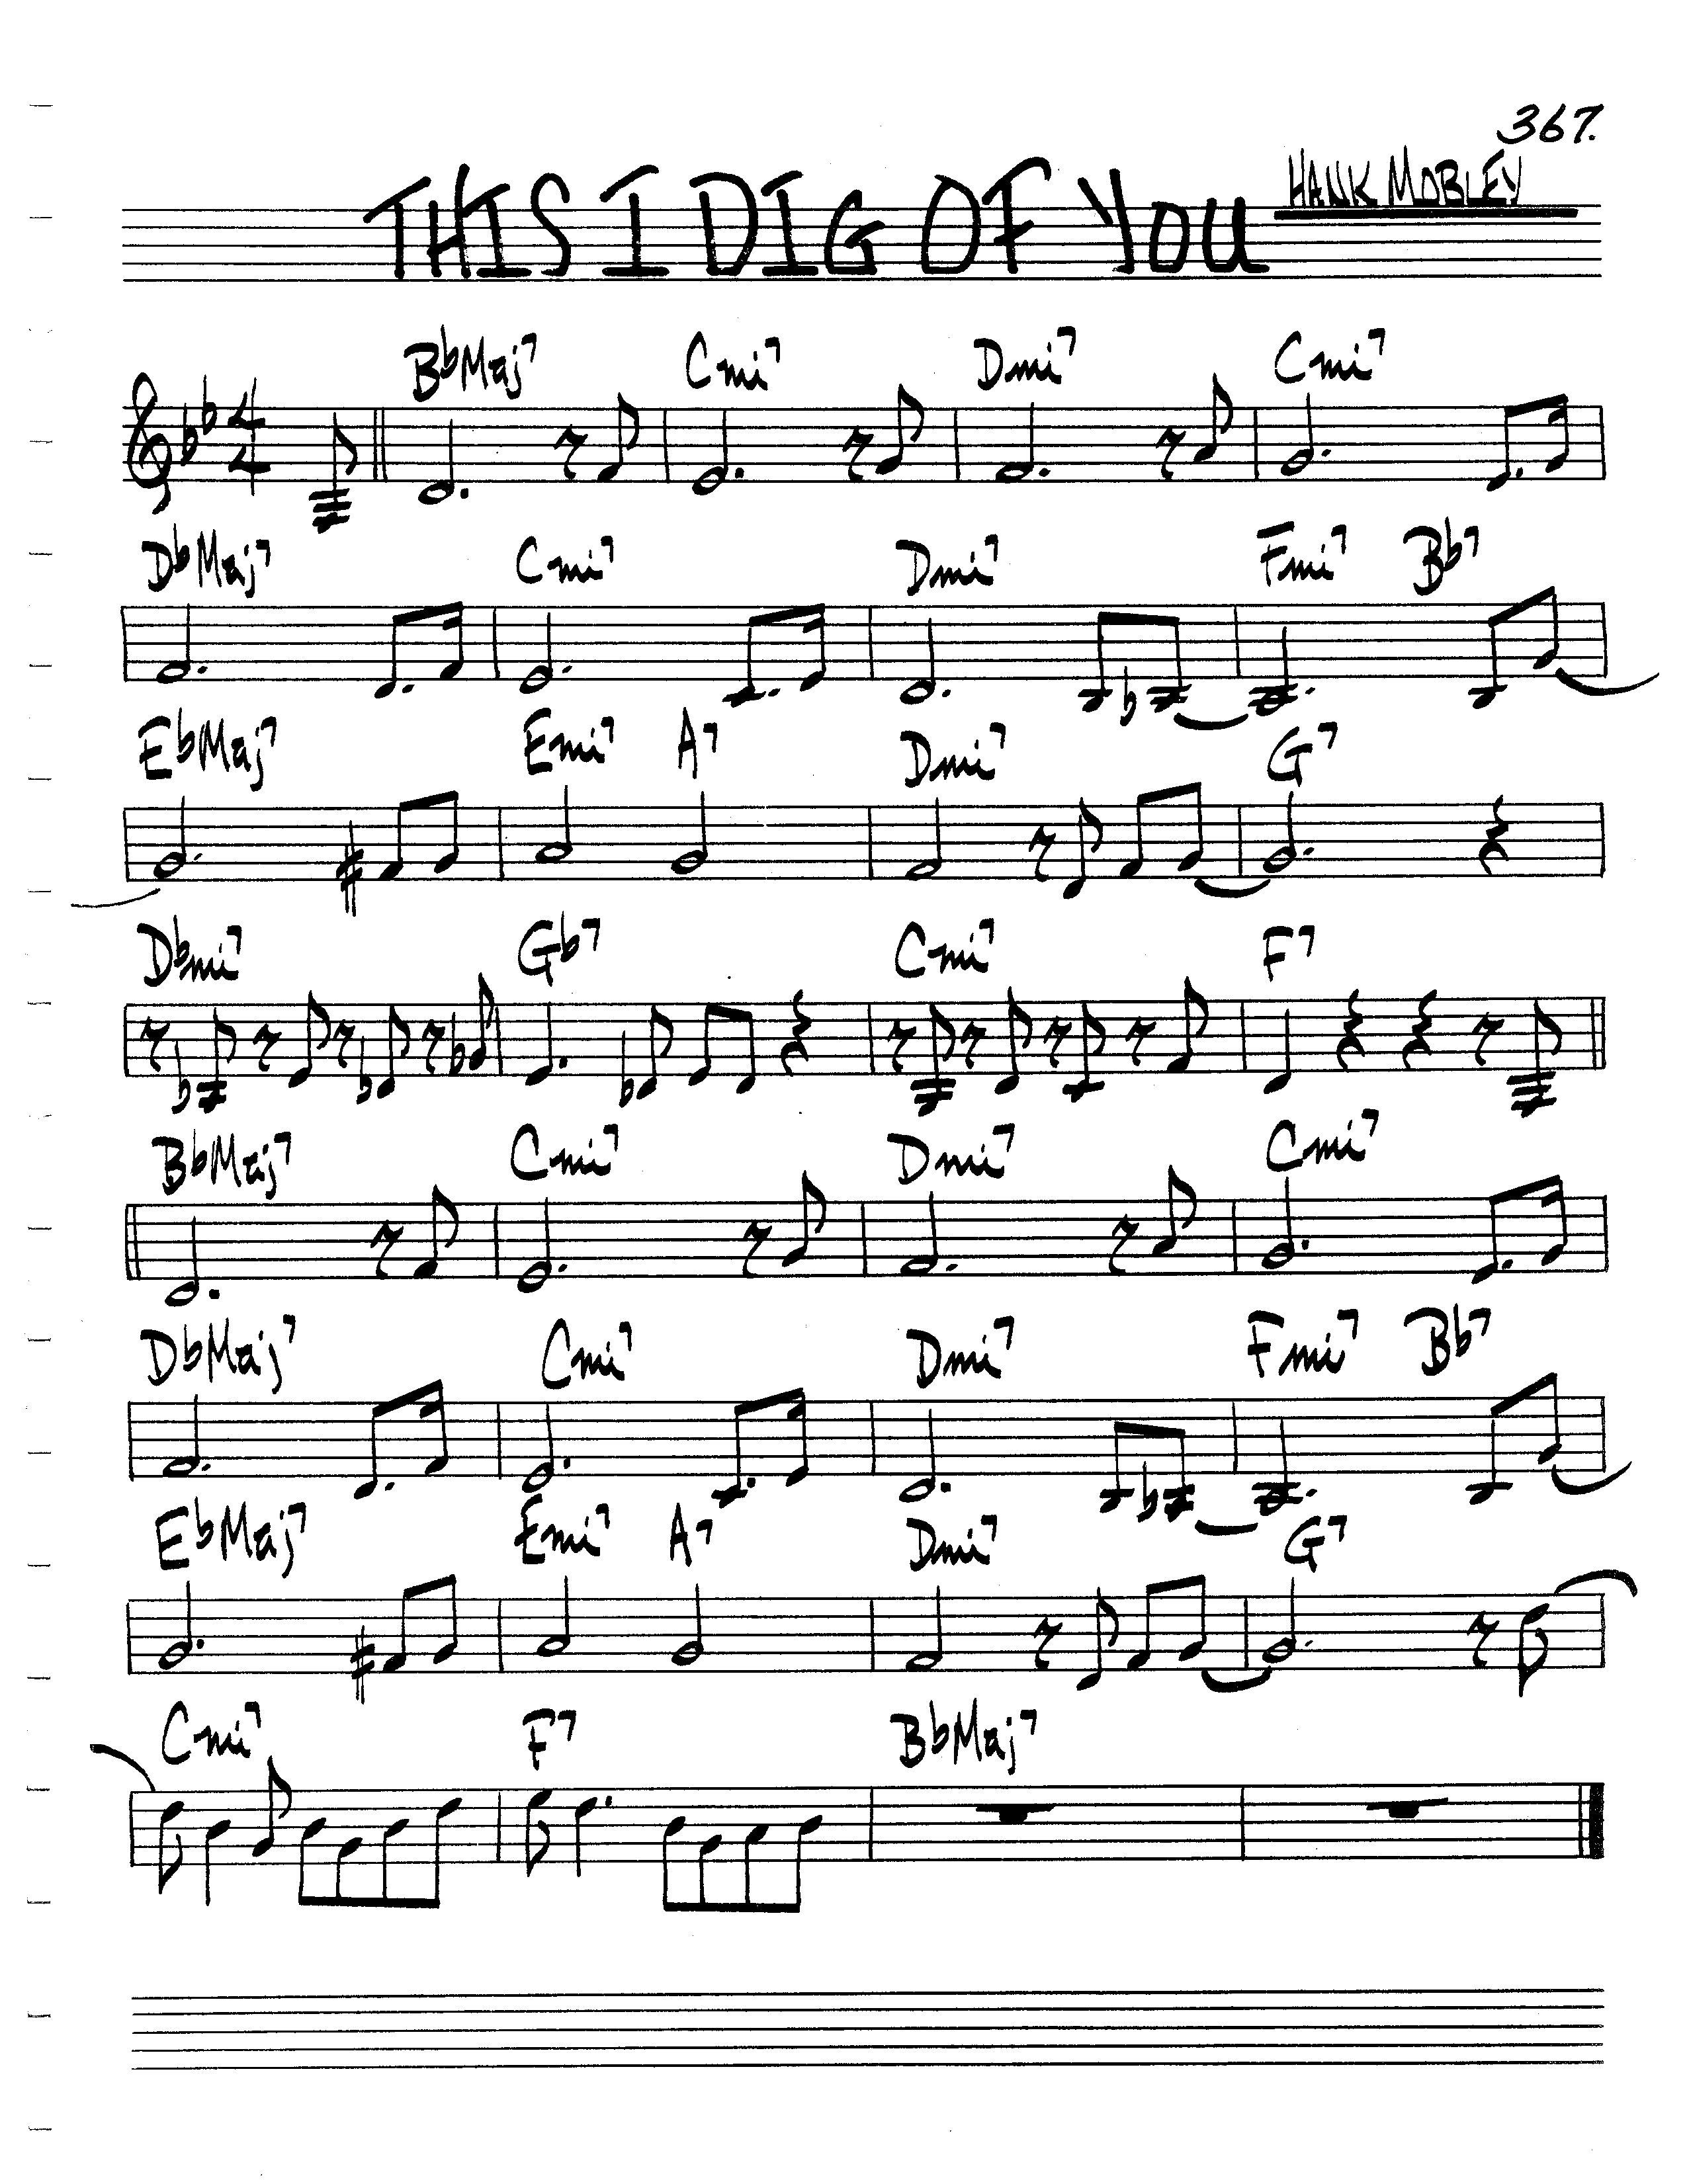 367.
THIS I DIG OF YOU
HANK MOBLEY
B♭Maj7 Cmi7 Dmi7 Cmi7
4/4
D♭Maj7 Cmi7 Dmi7 Fmi7 B♭7
E♭Maj7 Emi7 A7 Dmi7 G7
D♭mi7 G♭7 Cmi7 F7
B♭Maj7 Cmi7 Dmi7 Cmi7
D♭Maj7 Cmi7 Dmi7 Fmi7 B♭7
E♭Maj7 Emi7 A7 Dmi7 G7
Cmi7 F7 B♭Maj7